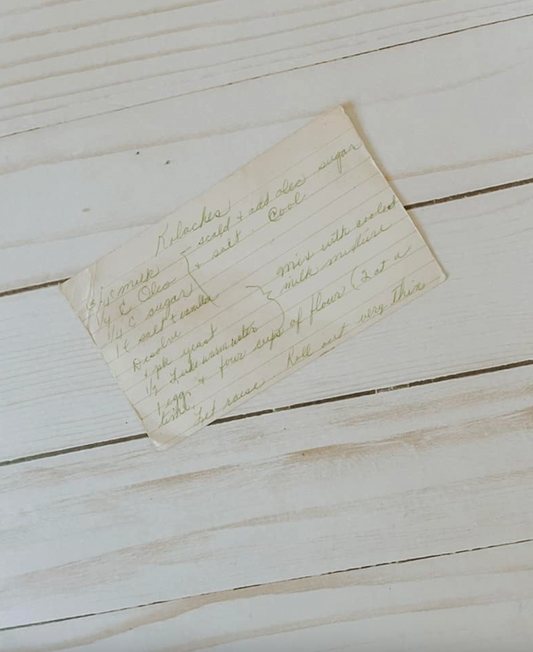 Kolaches
milk - scald & add oleo sugar
1/4 C Oleo & salt. Cool
1/4 C sugar
1 t salt & vanilla
Dissolve
1 pk yeast mix with cooled
1/2 Lukewarm water milk mixture
1 egg & four cups of flour (2 at a
time. Let raise Roll out very thin